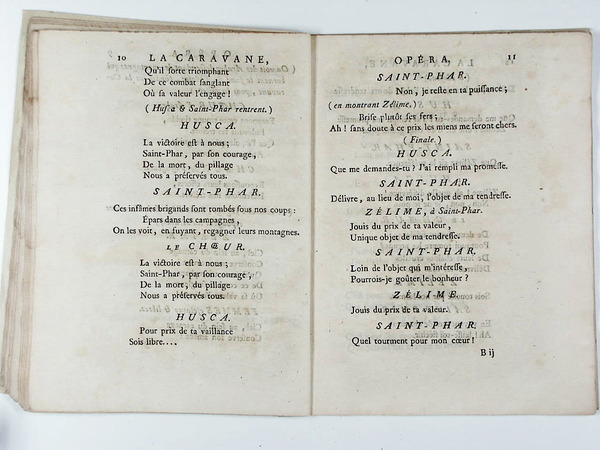 10 LA CARAVANE,
Qu'il sorte triomphant
De ce combat sanglant
Où sa valeur l'engage !
( Husca & Saint-Phar rentrent. )
HUSCA.
La victoire est à nous ;
Saint-Phar, par son courage,
De la mort, du pillage
Nous a préservés tous.
SAINT-PHAR.
Ces infâmes brigands sont tombés sous nos coups :
Épars dans les campagnes,
On les voit, en fuyant, regagner leurs montagnes.
LE CHŒUR.
La victoire est à nous ;
Saint-Phar, par son courage,
De la mort, du pillage
Nous a préservés tous.
HUSCA.
Pour prix de ta vaillance
Sois libre....
OPÉRA, 11
SAINT-PHAR.
Non, je reste en ta puissance ;
( en montrant Zélime. )
Brise plutôt ses fers ;
Ah ! sans doute à ce prix les miens me seront chers.
( Finale. )
HUSCA.
Que me demandes-tu ? J'ai rempli ma promesse.
SAINT-PHAR.
Délivre, au lieu de moi, l'objet de ma tendresse.
ZÉLIME, à Saint-Phar.
Jouis du prix de ta valeur,
Unique objet de ma tendresse.
SAINT-PHAR.
Loin de l'objet qui m'intéresse,
Pourrois-je goûter le bonheur ?
ZÉLIME.
Jouis du prix de ta valeur.
SAINT-PHAR.
Quel tourment pour mon cœur !
B ij